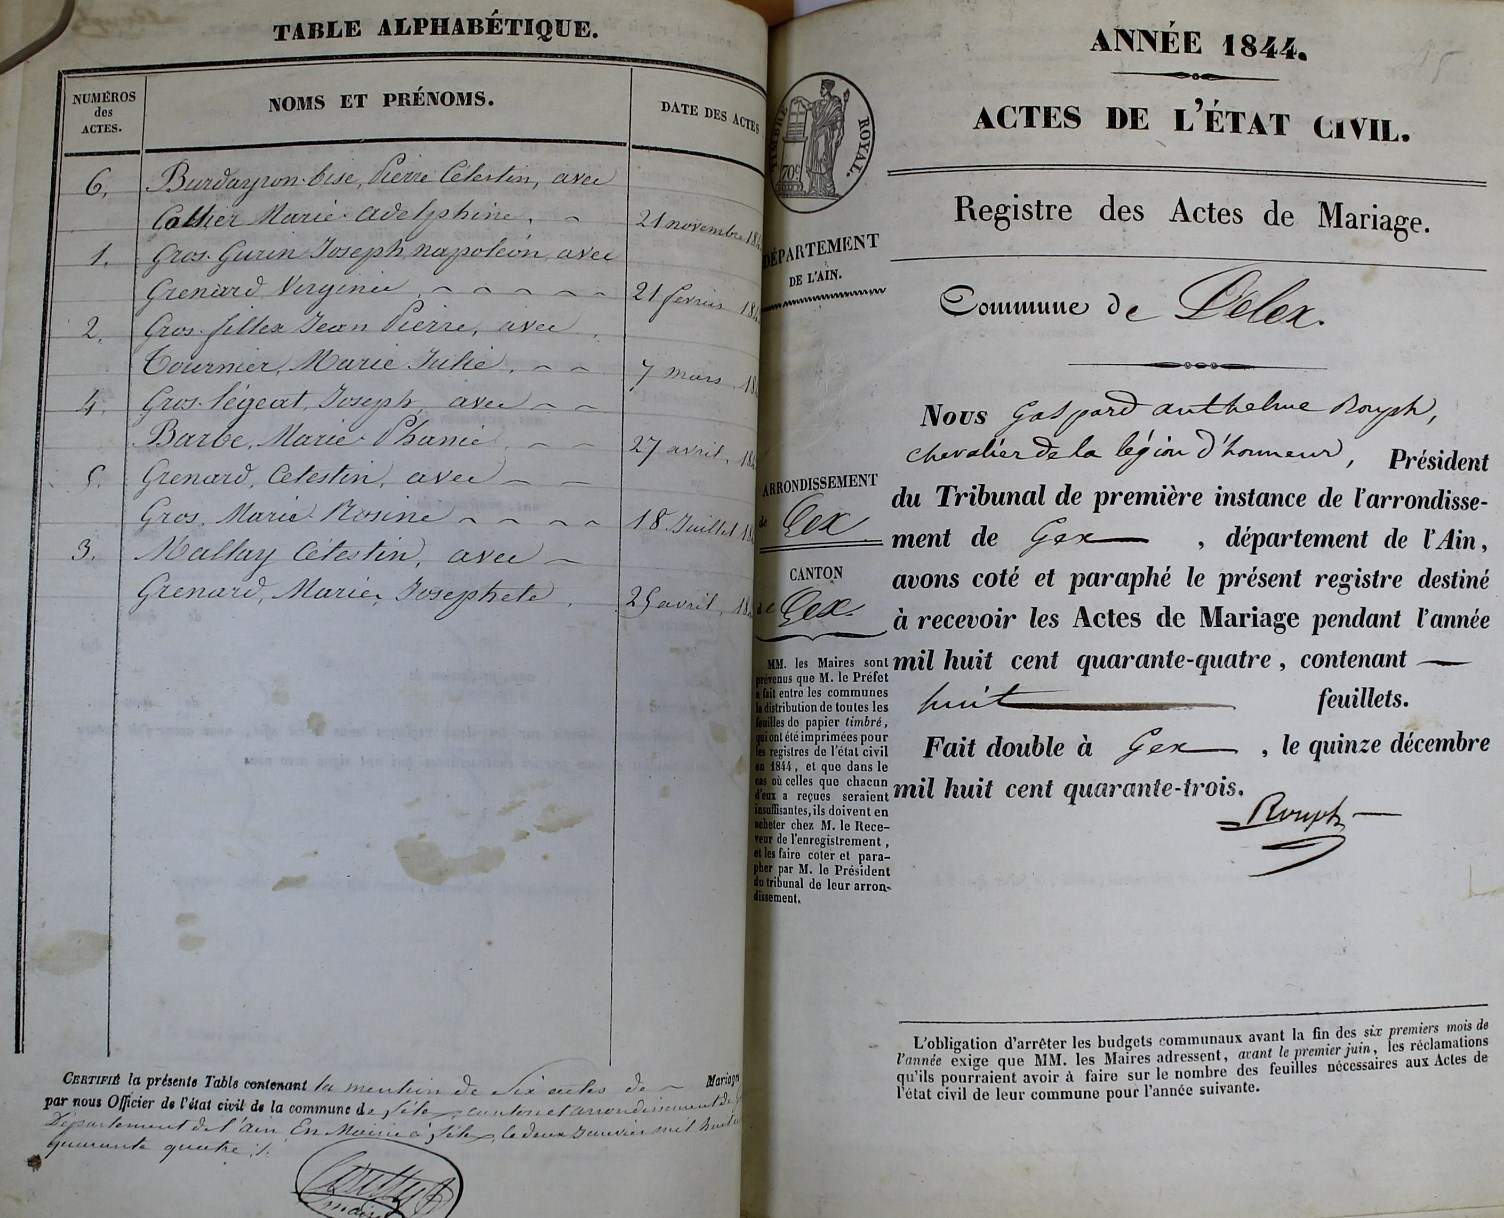 TABLE ALPHABÉTIQUE.
NUMÉROS
des
ACTES.
NOMS ET PRÉNOMS.
DATE DES ACTES
6. Burdayron-bise, Pierre Célestin, avec
Collier Marie Adelphine. 21 novembre
1. Gros-Gurin Joseph napoléon, avec
Grenard Virginie 21 février
2. Gros-fillex Jean Pierre, avec
Tournier, Marie Julie. 7 mars
4. Gros-légeat, Joseph, avec
Barbe, Marie Phanie 27 avril.
5. Grenard, Célestin, avec
Gros, Marie Rosine 18 Juillet
3. Mallay Célestin, avec
Grenard, Marie, Josephete. 25 avril.
CERTIFIÉ la présente Table contenant la mention de Six actes de Mariage
par nous Officier de l'état civil de la commune de canton et arrondissement de
Département de l'ain, En Mairie à le deux Janvier mil huit
quarante quatre ./.
maire
ANNÉE 1844.
ACTES DE L'ÉTAT CIVIL.
TIMBRE ROYAL.
70c
Registre des Actes de Mariage.
DÉPARTEMENT
DE L'AIN.
Commune de Lelex.
Nous Gaspard anthelme Rouph,
chevalier de la légion d'honneur, Président
du Tribunal de première instance de l'arrondisse-
ment de Gex, département de l'Ain,
avons coté et paraphé le présent registre destiné
à recevoir les Actes de Mariage pendant l'année
mil huit cent quarante-quatre, contenant —
huit feuillets.
Fait double à Gex, le quinze décembre
mil huit cent quarante-trois.
Rouph
ARRONDISSEMENT
de Gex
CANTON
de Gex
MM. les Maires sont
prévenus que M. le Préfet
a fait entre les communes
la distribution de toutes les
feuilles do papier timbré,
qui ont été imprimées pour
les registres de l'état civil
en 1844, et que dans le
cas où celles que chacun
d'eux a reçues seraient
insuffisantes, ils doivent en
acheter chez M. le Rece-
veur de l'enregistrement,
et les faire coter et para-
pher par M. le Président
du tribunal de leur arron-
dissement.
L'obligation d'arrêter les budgets communaux avant la fin des six premiers mois de
l'année exige que MM. les Maires adressent, avant le premier juin, les réclamations
qu'ils pourraient avoir à faire sur le nombre des feuilles nécessaires aux Actes de
l'état civil de leur commune pour l'année suivante.